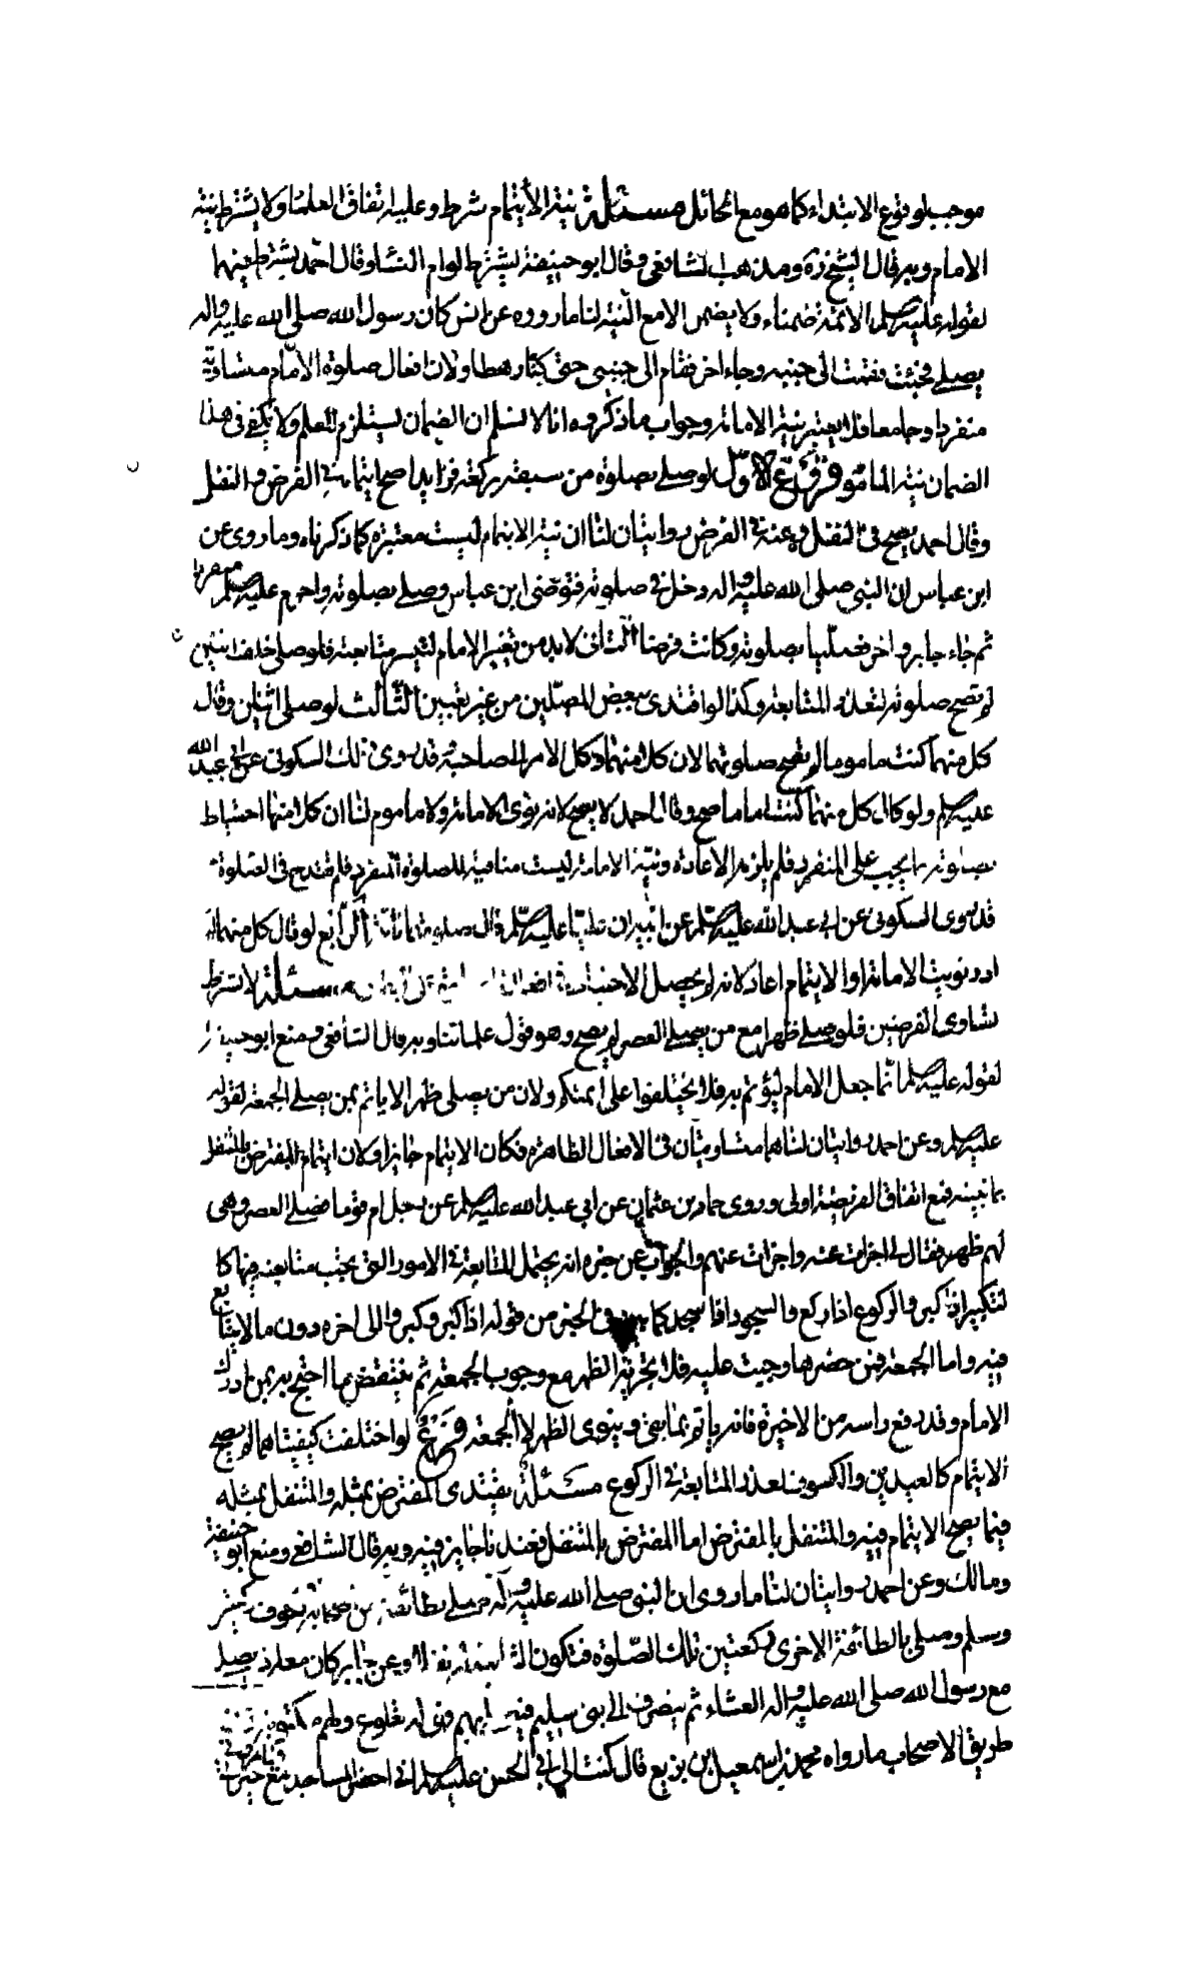 موجب لوقوع الابتداء كما هو مع الحائل مسئلة نية الايتمام شرط وعليه اتفاق العلماء ولا يشترط نية
الامام وبه قال الشيخ ره ومذهب الشافعى وقال ابو حنيفة يشترط لو ام النساء وقال احمد يشترط فيهما
لقوله عليه السلم الائمة ضمناء ولا يضمن الا مع النية لنا ما رووه عن انس كان رسول الله صلى الله عليه واله
يصلى فجئت فقمت الى جنبه وجاء اخر فقام الى جنبى حتى كنا رهطا ولان افعال صلوة الامام متساوية
منفردا وجامعا فلا يعتبر نية الامامة وجواب ما ذكروه انا لا نسلم ان الضمان يستلزم العلم ولا يكفى فى هذا
الضمان نية الماموم فروع الاول لو صلى بصلوة من سبقه بركعة فزايدا صح ايتمامه فى الفرض والنفل
وقال احمد يصح فى النفل وعنه فى الفرض روايتان لنا ان نية الايتمام ليست معتبرة كما ذكرناه وما روى عن
ابن عباس ان النبى صلى الله عليه واله دخل فى صلوته فتوضى ابن عباس وصلى بصلوته واحرم عليه السلم منفردا
ثم جاء جابر واخر فصليا بصلوته وكانت فرضا الثانى لا بد من تعيين الامام لتيسر متابعته فلو صلى خلف اثنين
لم تصح صلوته لتعذر المتابعة وكذا لو اقتدى ببعض المصلين من غير تعيين الثالث لو صلى اثنان وقال
كل منهما كنت ماموما لم تصح صلوتهما لان كلا منهما وكل الامر الى صاحبه وقد روى ذلك السكونى عن ابى عبد الله
عليه السلم ولو كان كل منهما كنت اماما صح وقال احمد لا يصح لانه نوى الامامة ولا ماموم لنا ان كلا منهما احتاط
بصلوته ما يجب على المنفرد فلم يلزمه الاعادة ونية الامامة ليست منافية للصلوة المنفرد فلم تقدح فى الصلوة
قد روى السكونى عن ابى عبد الله عليه السلم عن ابيه ان عليا عليه السلم قال صلوتهما تامة الرابع لو قال كل منهما لم
ادر نويت الامامة او الايتمام اعاد لانه لم يحصل الاحتياط مسئلة لا يشترط
تساوى الفرضين فلو صلى ظهرا مع من يصلى العصر صح وهو قول علمائنا وبه قال الشافعى ومنع ابو حنيفة
لقوله عليه السلم انما جعل الامام ليؤتم به فلا تختلفوا على ائمتكم ولان من يصلى ظهرا لا ياتم بمن يصلى الجمعة لقوله
عليه السلم وعن احمد روايتان لنا هما متساويتان فى الافعال الظاهرة فكان الايتمام جايزا ولان ايتمام المفترض بالمتنفل
بما نبينه فمع اتفاق الفرضية اولى وروى حماد بن عثمان عن ابى عبد الله عليه السلم عن رجل ام قوما فصلى العصر وهى
لهم ظهر فقال لى اجزات عنه واجزات عنهم والجواب عن خبره انه يحتمل المتابعة فى الامور التى يجب متابعته فيها كا
لتكبير اذا كبر والركوع اذا ركع والسجود اذا سجد كما فى الخبر من قوله اذا كبر وكبروا الى اخره دون ما لا يتابع
فيه واما الجمعة فمن حضرها وجبت عليه فلا يجزيه الظهر مع وجوب الجمعة ثم ينتقض ما احتج به بمن ادرك
الامام وقد رفع راسه من الاخيرة فانه ياتم بما بقى وينوى الظهر لا الجمعة فرع لو اختلفت كيفيتاهما لم يصح
الايتمام كالعيدين والكسوف لتعذر المتابعة فى الركوع مسئلة يقتدى المفترض بمثله والمتنفل بمثله
فيما يصح الايتمام فيه والمتنفل بالمفترض اما المفترض بالمتنفل فعندنا جايز فيه وبه قال الشافعى ومنع ابو حنيفة
ومالك وعن احمد روايتان لنا ما روى ان النبى صلى الله عليه واله صلى بطائفة من اصحابه بخوف ركعتين
وسلم وصلى بالطائفة الاخرى ركعتين تلك الصلوة فتكون الثانية له نفلا وعن جابر كان معاذ يصلى
مع رسول الله صلى الله عليه واله العشاء ثم ينصرف الى بنى سليم فيصلى بهم هى له تطوع ولهم مكتوبة
طريق الاصحاب ما رواه محمد بن اسمعيل بن بزيع قال كتبت الى ابى الحسن عليه السلم انى احضر المساجد مع جيرانى